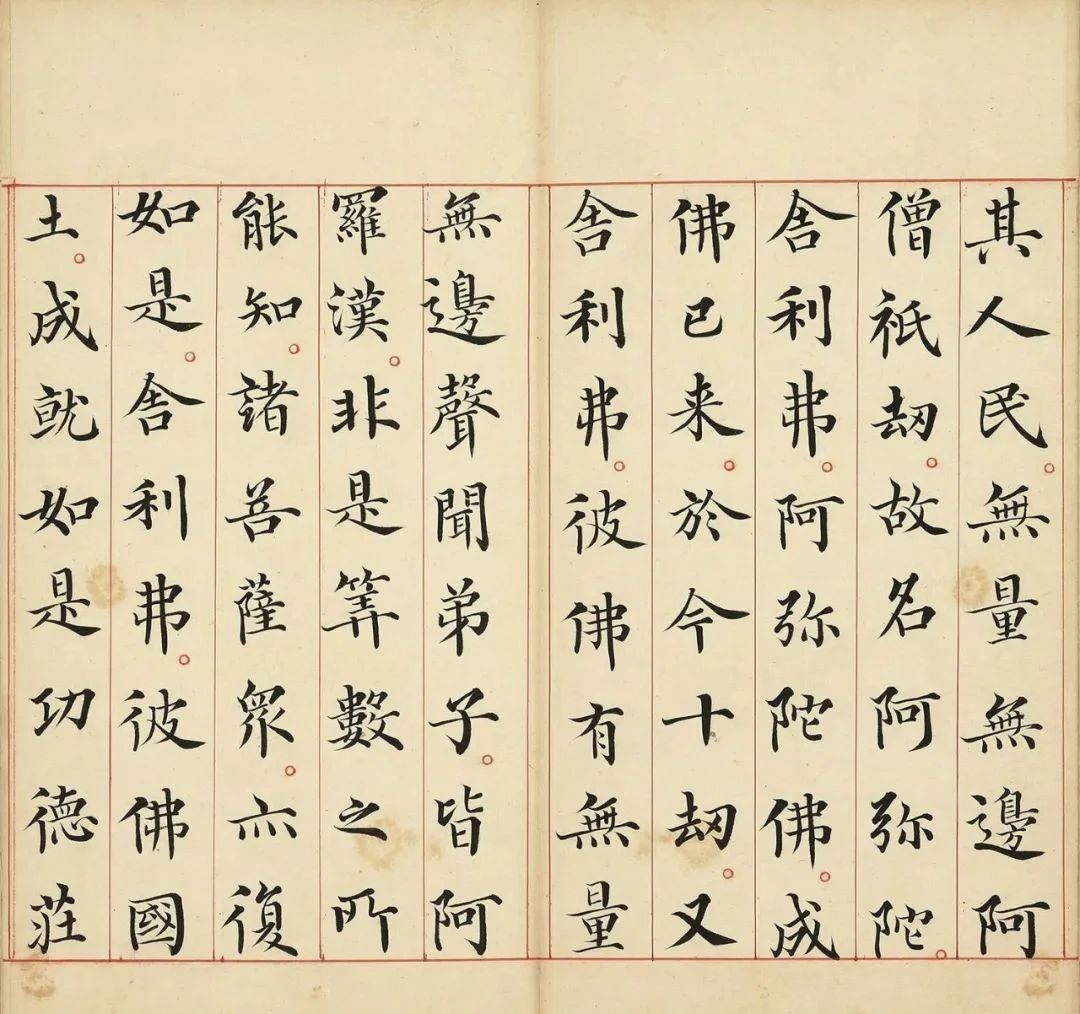 其人民。無量無邊阿
僧祇劫。故名阿弥陀。
舍利弗。阿弥陀佛。成
佛已来。於今十劫。又
舍利弗。彼佛有無量
無邊聲聞弟子。皆阿
羅漢。非是筭數之所
能知。諸菩薩衆。亦復
如是。舍利弗。彼佛國
土。成就如是功德莊